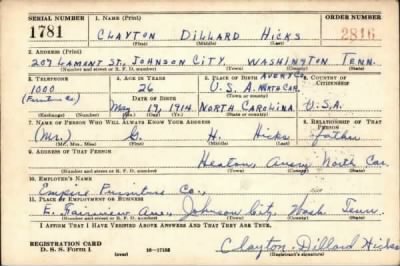 SERIAL NUMBER 1. NAME (Print) ORDER NUMBER
1781 CLAYTON DILLARD HICKS 2816
(First) (Middle) (Last)
2. ADDRESS (Print)
207 LAMONT ST, JOHNSON CITY, WASHINGTON TENN.
(Number and street or R. F. D. number) (Town) (County) (State)
3. TELEPHONE 4. AGE IN YEARS 5. PLACE OF BIRTH 6. COUNTRY OF CITIZENSHIP
1000 26 AVERY CO. U.S.A. NORTH CAR.
(Furniture Co.) DATE OF BIRTH (Town or county)
May 19, 1914 NORTH CAROLINA U.S.A.
(Exchange) (Number) (Mo.) (Day) (Yr.) (State or country)
7. NAME OF PERSON WHO WILL ALWAYS KNOW YOUR ADDRESS 8. RELATIONSHIP OF THAT PERSON
(Mr.) G. H. Hicks father
(Mr., Mrs., Miss) (First) (Middle) (Last)
9. ADDRESS OF THAT PERSON
Heaton, Avery North Car.
(Number and street or R. F. D. number) (Town) (County) (State)
10. EMPLOYER'S NAME
Empire Furniture Co.,
11. PLACE OF EMPLOYMENT OR BUSINESS
E. Fairview Ave, Johnson City, Wash. Tenn.
(Number and street or R. F. D. number) (Town) (County) (State)
I AFFIRM THAT I HAVE VERIFIED ABOVE ANSWERS AND THAT THEY ARE TRUE.
REGISTRATION CARD
D. S. S. Form 1 (over) 16-17105 Clayton Dillard Hicks
(Registrant's signature)